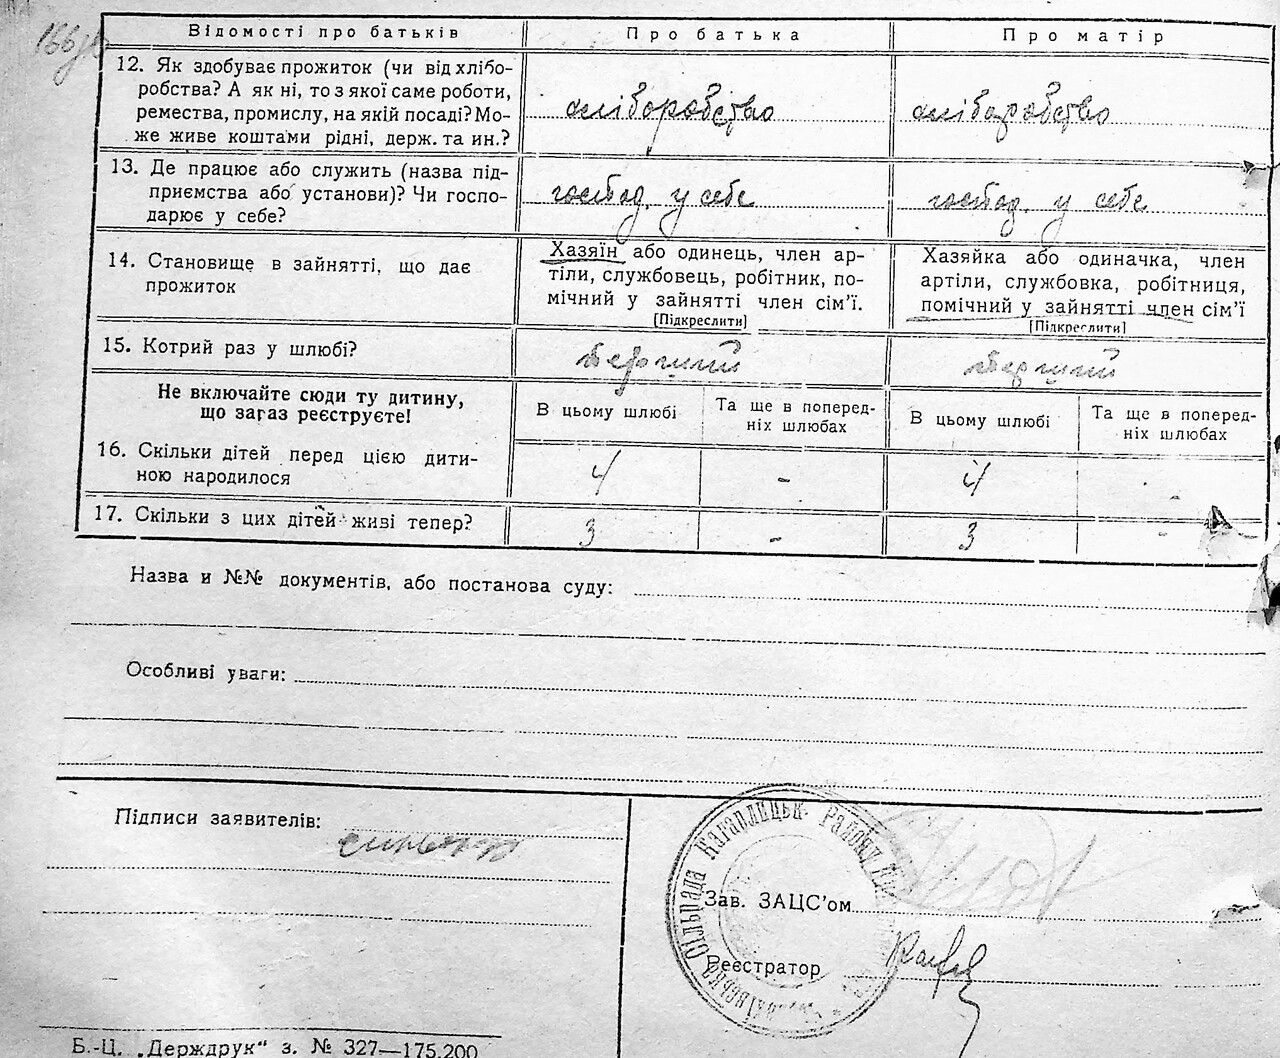 166зв
Відомості про батьків
Про батька
Про матір
12. Як здобуває прожиток (чи від хлібо-
робства? А як ні, то з якої саме роботи,
ремества, промислу, на якій посаді? Мо-
же живе коштами рідні, держ. та ин.?
хліборобство
хліборобство
13. Де працює або служить (назва під-
приємства або установи)? Чи госпо-
дарює у себе?
господ. у себе
господ. у себе
14. Становище в зайнятті, що дає
прожиток
Хазяїн або одинець, член ар-
тіли, службовець, робітник, по-
мічний у зайнятті член сім'ї.
[Підкреслити]
Хазяйка або одиначка, член
артіли, службовка, робітниця,
помічний у зайнятті член сім'ї
[Підкреслити]
15. Котрий раз у шлюбі?
перший
перший
Не включайте сюди ту дитину,
що загаз реєструєте!
В цьому шлюбі
Та ще в поперед-
ніх шлюбах
В цьому шлюбі
Та ще в поперед-
ніх шлюбах
16. Скільки дітей перед цією дити-
ною народилося
4
-
4
-
17. Скільки з цих дітей живі тепер?
3
-
3
-
Назва и №№ документів, або постанова суду:
Особливі уваги:
Підписи заявителів:
Зав. ЗАЦС'ом
Реєстратор
Сільрада Кагарлицьк. Району
Б.-Ц. „Держдрук“ з. № 327—175.200